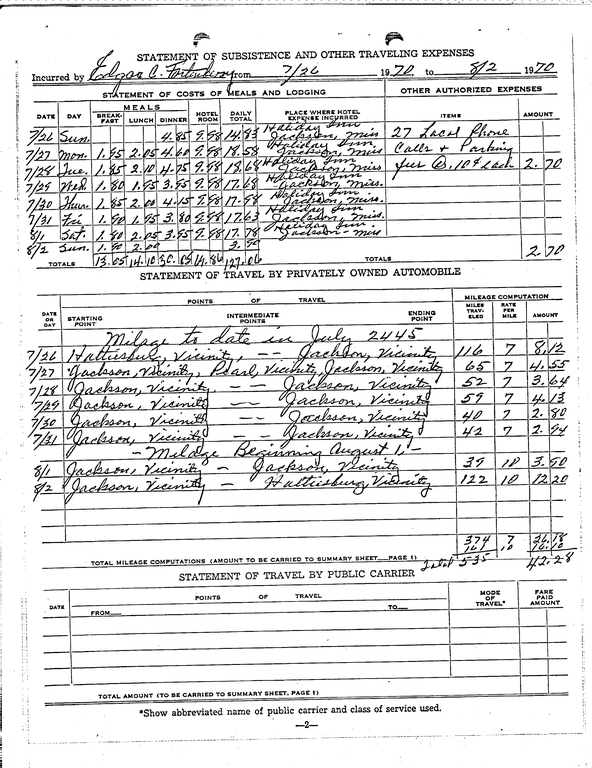 STATEMENT OF SUBSISTENCE AND OTHER TRAVELING EXPENSES
Incurred by Edgar C. Fortenberry from 7/26 1970 to 8/2 1970
STATEMENT OF COSTS OF MEALS AND LODGING OTHER AUTHORIZED EXPENSES
DATE DAY MEALS BREAK-FAST LUNCH DINNER HOTEL ROOM DAILY TOTAL PLACE WHERE HOTEL EXPENSE INCURRED ITEMS AMOUNT
7/26 Sun. 4.85 9.98 14.83 Holiday Inn Jackson, Miss 27 Local Phone
7/27 Mon. 1.95 2.05 4.60 9.98 18.58 Holiday Inn Jackson, Miss Calls & Parking
7/28 Tue. 1.85 2.10 4.75 9.98 18.68 Holiday Inn Jackson, Miss fees @ .10¢ each 2.70
7/29 Wed 1.80 1.95 3.95 9.98 17.68 Holiday Inn Jackson, Miss.
7/30 Thur. 1.85 2.00 4.15 9.98 17.98 Holiday Inn Jackson, Miss.
7/31 Fri 1.90 1.95 3.80 9.98 17.63 Holiday Inn Jackson, Miss.
8/1 Sat. 1.80 2.05 3.95 9.98 17.78 Holiday Inn Jackson - Miss
8/2 Sun. 1.90 2.00 3.90
TOTALS 13.05 14.10 30.05 69.86 127.06 TOTALS 2.70
STATEMENT OF TRAVEL BY PRIVATELY OWNED AUTOMOBILE
DATE OR DAY POINTS OF TRAVEL MILEAGE COMPUTATION
STARTING POINT INTERMEDIATE POINTS ENDING POINT MILES TRAV-ELED RATE PER MILE AMOUNT
Milage to date in July 2445
7/26 Hattiesburg, Vicinity, -- Jackson, Vicinity 116 7 8.12
7/27 Jackson, Vicinity, Pearl, Vicinity, Jackson, Vicinity 65 7 4.55
7/28 Jackson, Vicinity -- Jackson, Vicinity 52 7 3.64
7/29 Jackson, Vicinity -- Jackson, Vicinity 59 7 4.13
7/30 Jackson, Vicinity -- Jackson, Vicinity 40 7 2.80
7/31 Jackson, Vicinity -- Jackson, Vicinity 42 7 2.94
- Mildage Beginning August 1, -
8/1 Jackson, Vicinity - Jackson, Vicinity 39 10 3.90
8/2 Jackson, Vicinity - Hattiesburg, Vicinity 122 10 12.20
374 7 26.18
161 10 16.10
TOTAL MILEAGE COMPUTATIONS (AMOUNT TO BE CARRIED TO SUMMARY SHEET, PAGE 1) Total 535 42.28
STATEMENT OF TRAVEL BY PUBLIC CARRIER
DATE POINTS OF TRAVEL MODE OF TRAVEL* FARE PAID AMOUNT
FROM TO
TOTAL AMOUNT (TO BE CARRIED TO SUMMARY SHEET, PAGE 1)
*Show abbreviated name of public carrier and class of service used.
—2—